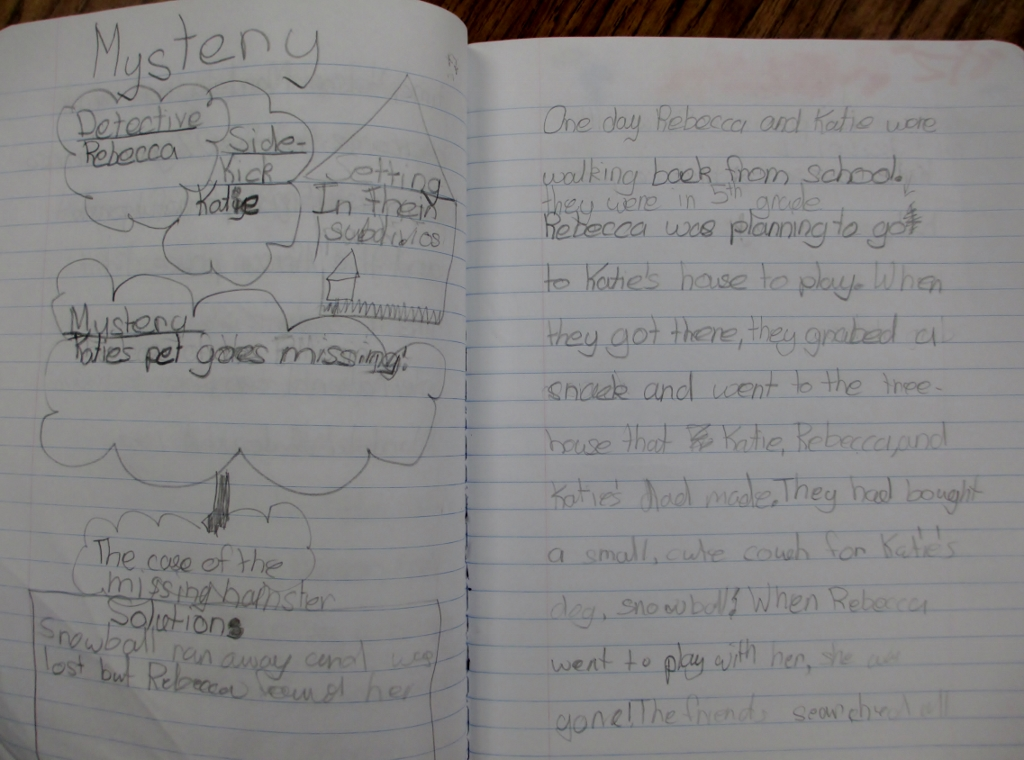 Mystery
Detective
Rebecca
Side-
Kick
Katie
Setting
In their
subdivios
Mystery
Katie's pet goes missing!
The case of the
missing hamster
Solutions
Snowball ran away and was
lost but Rebecca found her
One day Rebecca and Katie were
walking back from school.
they were in 5th grade
Rebecca was planning to go
to Katie's house to play. When
they got there, they grabed a
snack and went to the tree-
house that Katie, Rebecca, and
Katie's dad made. They had bought
a small, cute couch for Katie's
dog, snowball! When Rebecca
went to play with her, she was
gone! The friends searched all